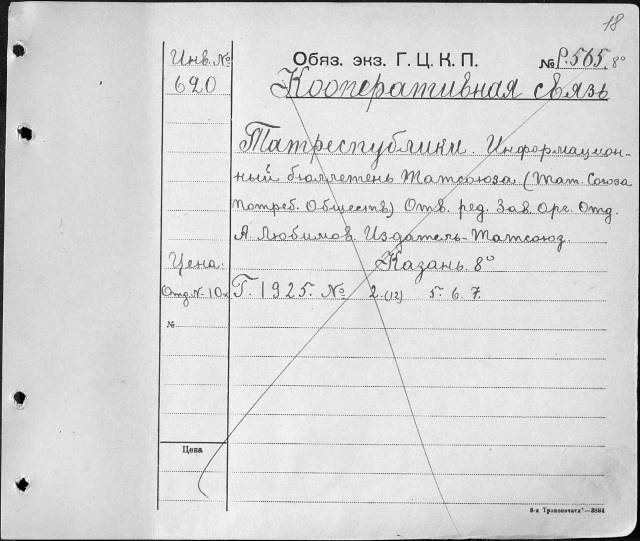 18
Инв. №
620
Обяз. экз. Г. Ц. К. П.
№ Р.565. 8°
Кооперативная связь
Татреспублики. Информацион-
ный бюллетень Татсоюза (Тат. Союза
Потреб. Обществ.) Отв. ред. Зав. Орг. Отд.
А. Любимов. Издатель-Татсоюз.
Цена.
Казань. 8°
Отд. №-10к
Г. 1925. № 2.(12) 5. 6. 7.
№
Цена